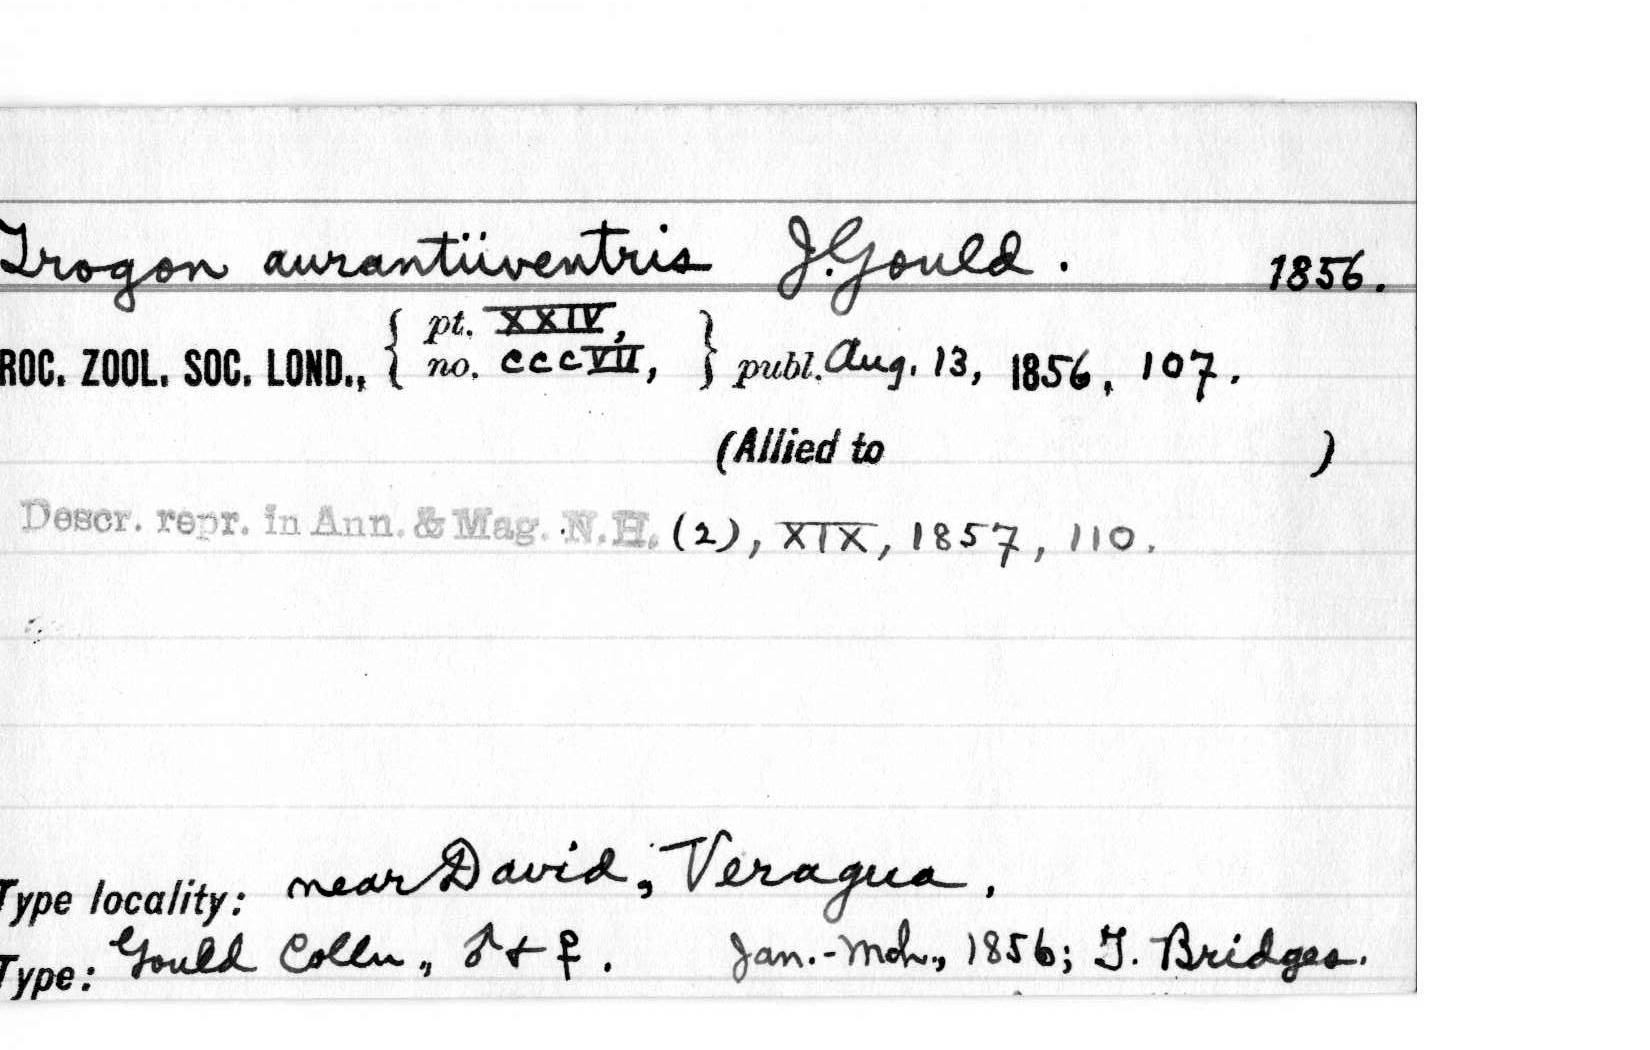 Trogon aurantiiventris J. Gould. 1856.
ROC. ZOOL. SOC. LOND., { pt. XXIV, no. cccVII, } publ. Aug. 13, 1856, 107.
(Allied to )
Descr. repr. in Ann. & Mag. N.H. (2), XIX, 1857, 110.
Type locality: near David, Veragua.
Type: Gould Colln., ♂ + ♀. Jan.-Mch., 1856; T. Bridges.